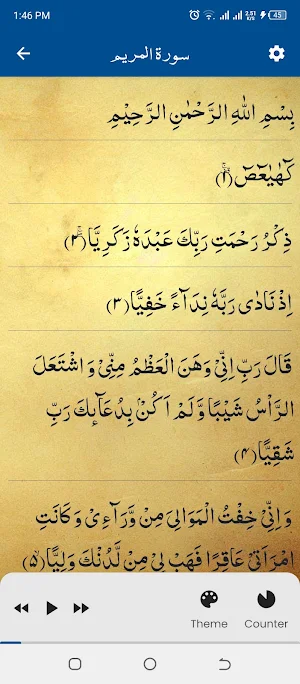 1:46 PM
2.51 KB/s
45
سورة المريم
بِسْمِ اللّٰهِ الرَّحْمٰنِ الرَّحِيْمِ
كٓهٰيٰعٓصٓ ۚ﴿۱﴾
ذِكْرُ رَحْمَتِ رَبِّكَ عَبْدَهٗ زَكَرِيَّا ۚ﴿۲﴾
اِذْ نَادٰى رَبَّهٗ نِدَآءً خَفِيًّا ﴿۳﴾
قَالَ رَبِّ اِنِّىْ وَهَنَ الْعَظْمُ مِنِّىْ وَ اشْتَعَلَ
الرَّاْسُ شَيْبًا وَّ لَمْ اَكُنْۢ بِدُعَآئِكَ رَبِّ
شَقِيًّا ﴿۴﴾
وَ اِنِّىْ خِفْتُ الْمَوَالِىَ مِنْ وَّرَآءِىْ وَ كَانَتِ
امْرَاَتِىْ عَاقِرًا فَهَبْ لِىْ مِنْ لَّدُنْكَ وَلِيًّا ﴿۵﴾
Theme
Counter